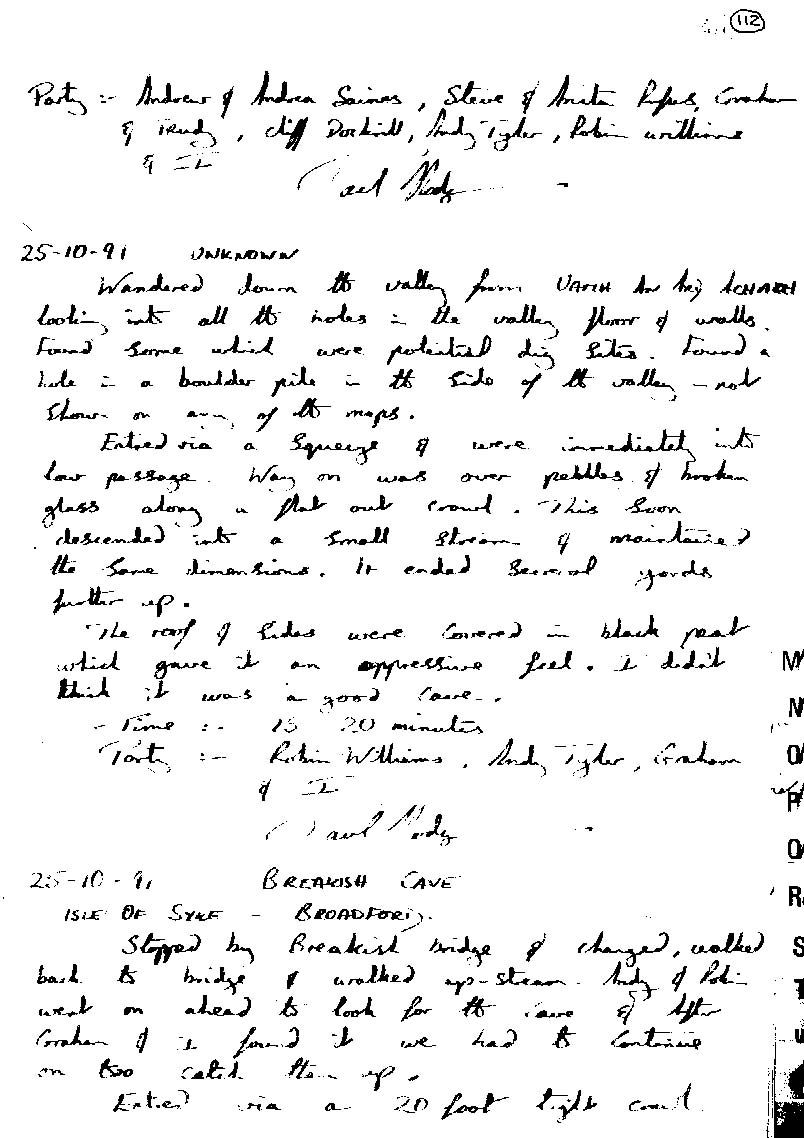 112
Party :- Andrew & Andrea Saines, Steve & Anita Rufus, Graham
& Trudy, Cliff Dockrill, Andy Tyler, Robin Williams
& I
Paul Mody
25-10-91 UNKNOWN
Wandered down the valley from UAMH An ACHADH
looking into all the holes in the valley floor & walls.
Found some which were potential dig sites. Found a
hole in a boulder pile in the side of the valley - not
shown on any of the maps.
Entred via a squeeze & were immediately into
low passage. Way on was over pebbles & broken
glass along a flat out crawl. This soon
descended into a small stream & maintained
the same dimensions. It ended several yards
further up.
The roof & sides were covered in black peat
which gave it an oppressive feel. I didn't
think it was a good cave.
- Time :- 15 20 minutes
Party :- Robin Williams, Andy Tyler, Graham
& I
Paul Mody
25-10-91 BREAKISH CAVE
ISLE OF SYKE - BROADFORD.
Stopped by Breakish bridge & changed, walked
back to bridge & walked up-stream. Andy & Robin
went on ahead to look for the cave & After
Graham & I found it we had to continue
on too catch them up.
Entred via a 20 foot tight crawl
M
N
O
P
Q
R
S
T
U